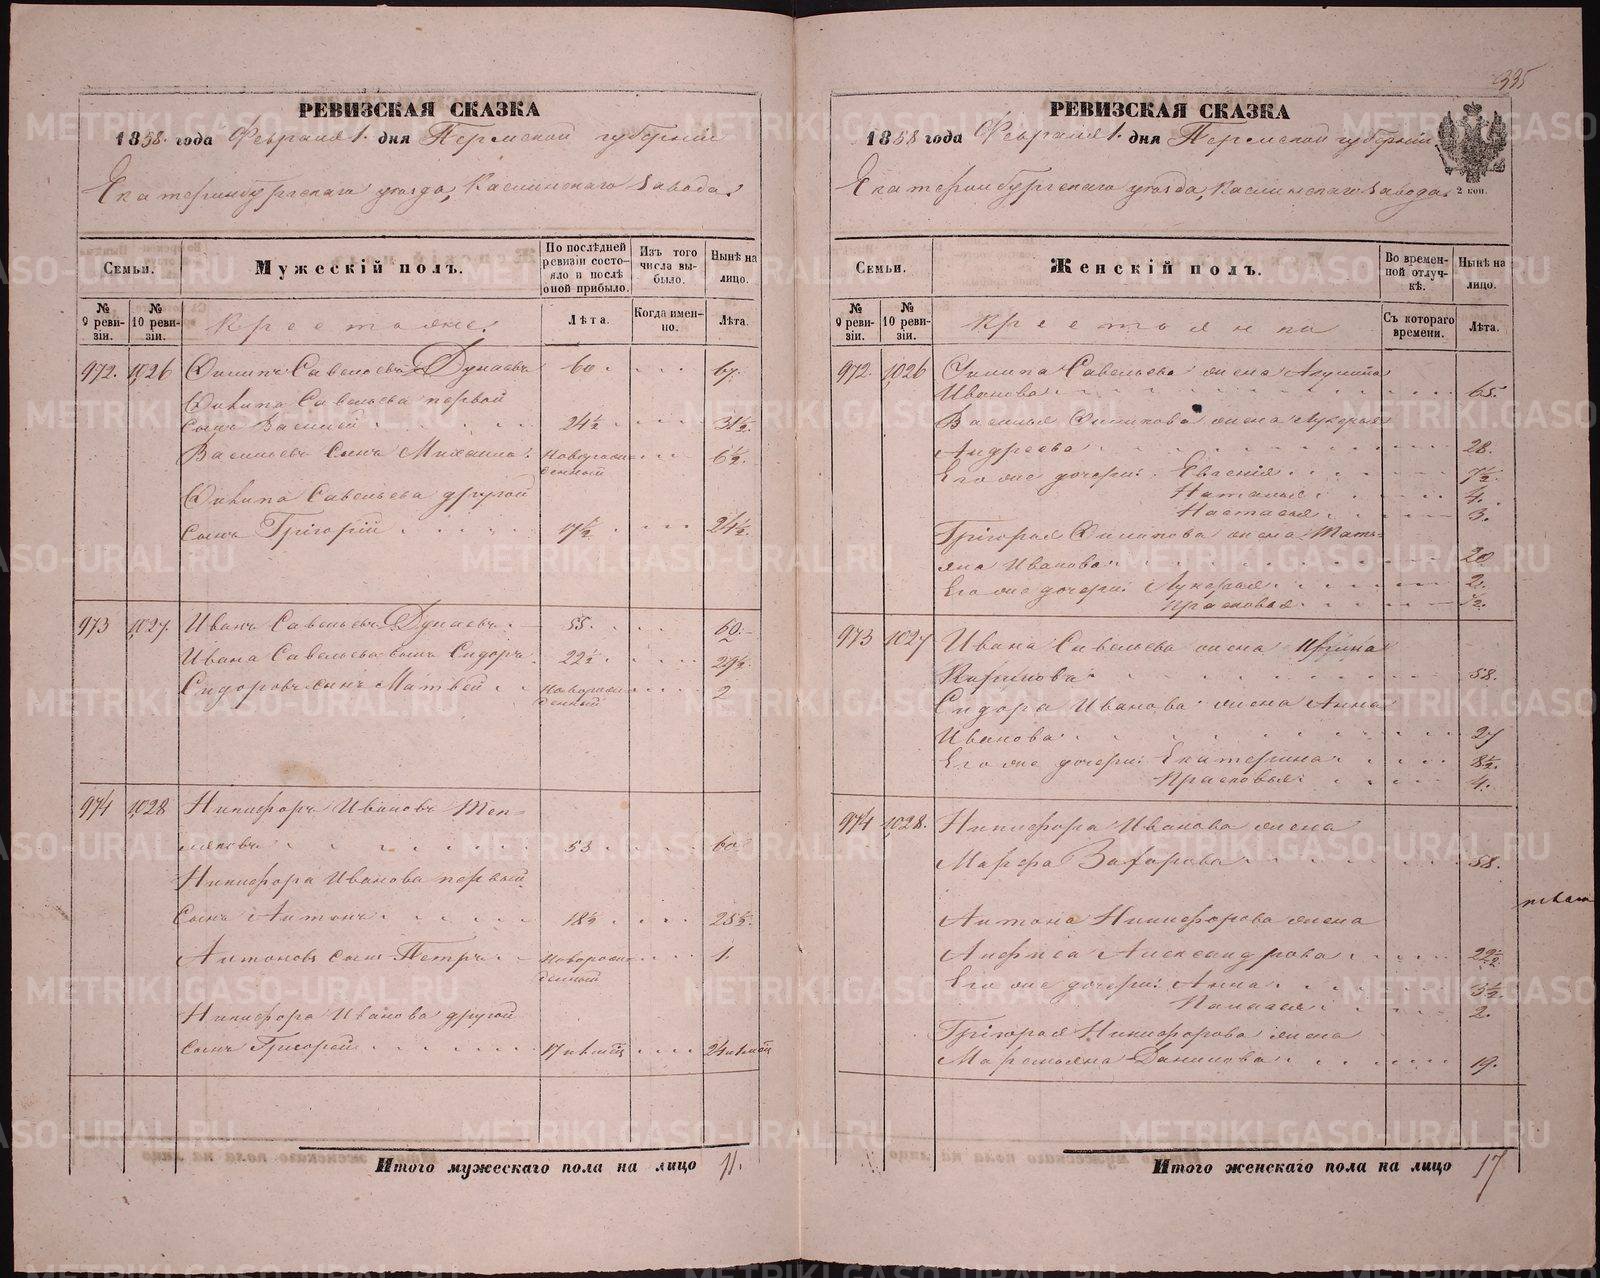 РЕВИЗСКАЯ СКАЗКА
1858. года Февраля 1. дня Пермской губернiи
Екатеринбургскаго уѣзда, Каслинскаго Завода.
Семьи.
Мужескiй полъ.
По послѣдней ревизiи состояло и послѣ оной прибыло.
Изъ того числа выбыло.
Нынѣ на лицо.
№ 9 ревизiи.
№ 10 ревизiи.
Крестьяне.
Лѣта.
Когда именно.
Лѣта.
972. 1026 Филипъ Савельевъ Дунаевъ 60 67.
Филипа Савельева первой
сынъ Василей 24½ 31½.
Васильевъ сынъ Михаило. Новорожденный 6½.
Филипа Савельева другой
сынъ Григорiй 17½ 24½.
973 1027. Иванъ Савельевъ Дунаевъ. 55. 60.
Ивана Савельева сынъ Сидоръ 22½ 29½.
Сидоровъ сынъ Матвей Новорожденный 2
974 1028 Никифоръ Ивановъ Теп-
ляковъ 53 60
Никифора Иванова первый
сынъ Антонъ 18½ 25½.
Антоновъ сынъ Петръ Новорожденный 1.
Никифора Иванова другой
сынъ Григорей 17 24
Итого мужескаго пола на лицо 11.
335
РЕВИЗСКАЯ СКАЗКА
1858 года Февраля 1. дня Пермской губернiи
Екатеринбургскаго уѣзда, Каслинскаго Завода.
2 коп.
Семьи.
Женскiй полъ.
Во временной отлучкѣ.
Нынѣ на лицо.
№ 9 ревизiи.
№ 10 ревизiи.
Крестьянки
Съ котораго времени.
Лѣта.
972. 1026 Филипа Савельева жена Акулина
Иванова 65.
Василья Филипова жена Лукерья
Андреева 28.
Его же дочери: Евгенiя 7½.
Наталья 4.
Настасья 3.
Григорья Филипова жена Тать-
яна Иванова 20
Его же дочери: Лукерья 2.
Прасковья ½.
973 1027 Ивана Савельева жена Ирина
58.
Сидора Иванова жена Анна
Иванова 27
Его же дочери: Екатерина 8½.
Прасковья 4.
974 1028. Никифора Иванова жена
Марфа Захарова 58.
Антона Никифорова жена
Анфиса Александрова 22½
Его же дочери: Анна 3½.
2.
Григорья Никифорова жена
Маремьяна Данилова 19.
Итого женскаго пола на лицо 17
METRIKI.GASO-URAL.RU